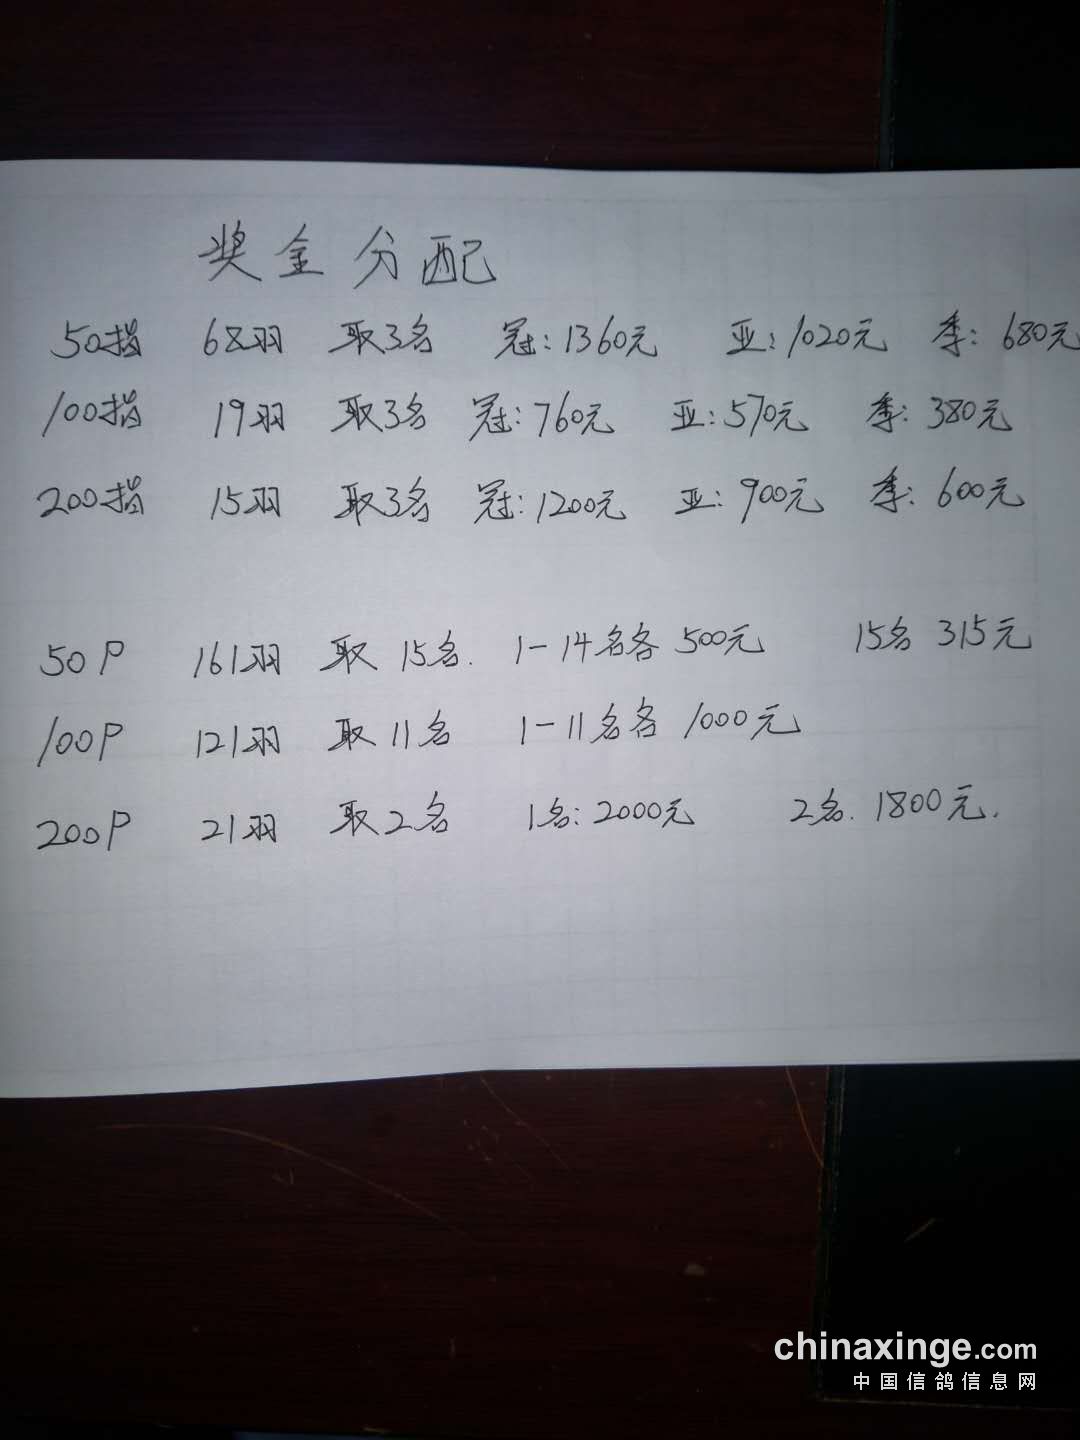 奖金分配
50指 68羽 取3名 冠:1360元 亚:1020元 季:680元
100指 19羽 取3名 冠:760元 亚:570元 季:380元
200指 15羽 取3名 冠:1200元 亚:900元 季:600元
50P 161羽 取15名. 1-14名各500元 15名 315元
100P 121羽 取11名 1-11名各1000元
200P 21羽 取2名 1名:2000元 2名.1800元.
chinaxinge.com
中国信鸽信息网